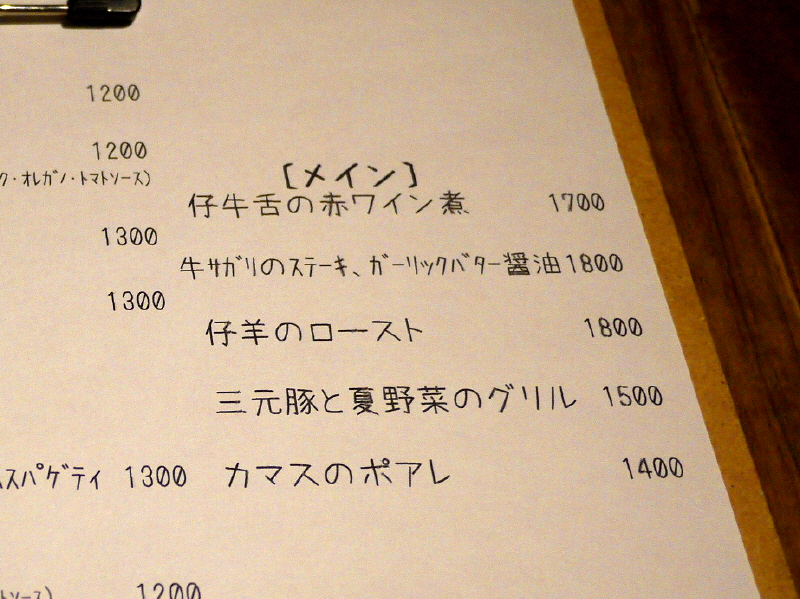 1200
1200
ク・オレガノ・トマトソース)
1300
1300
スパゲティ 1300
トソース) 1200
[メイン]
仔牛舌の赤ワイン煮 1700
牛サガリのステーキ、ガーリックバター醤油1800
仔羊のロースト 1800
三元豚と夏野菜のグリル 1500
カマスのポアレ 1400